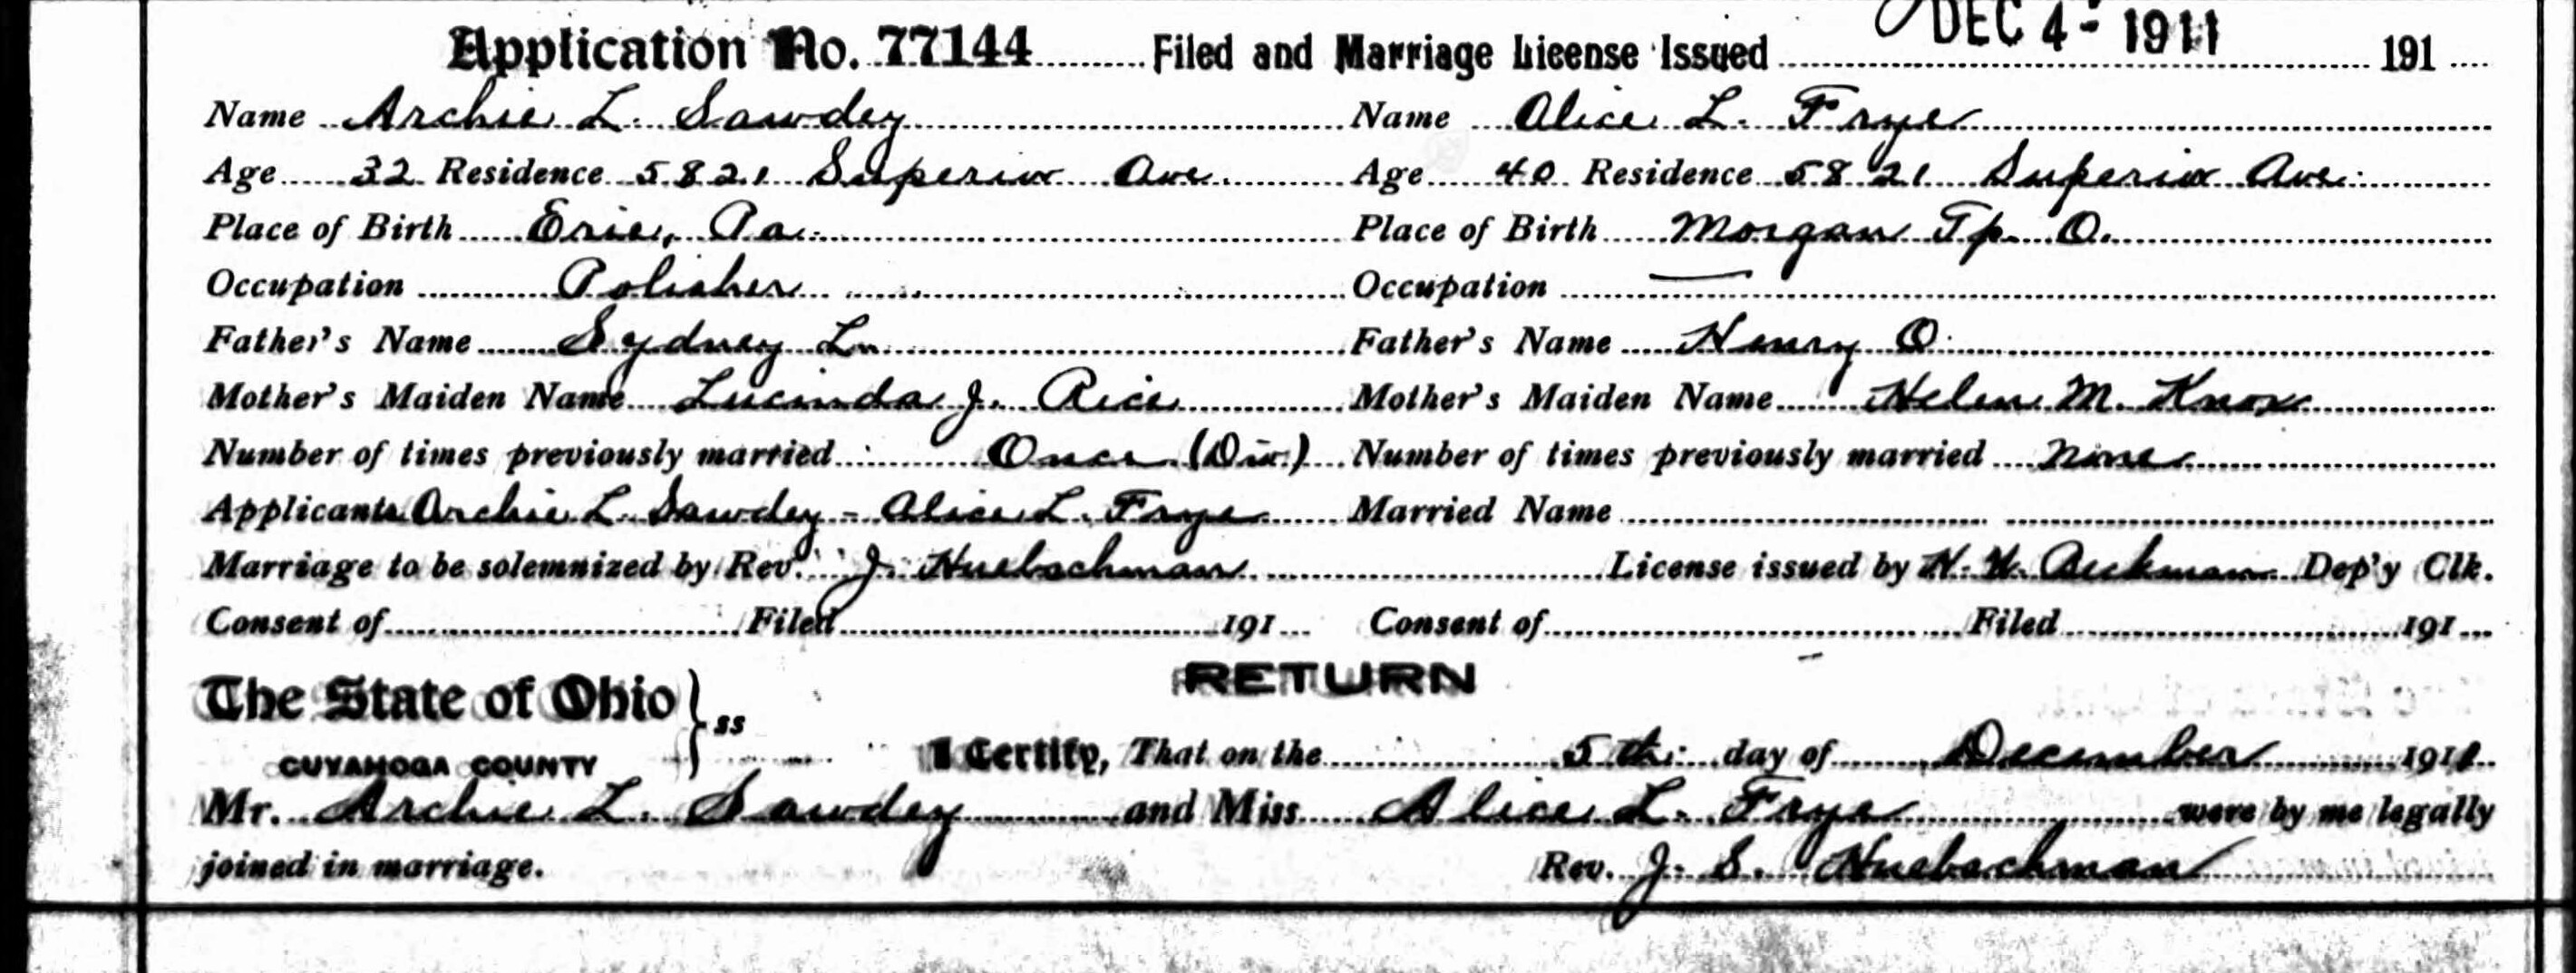 Application No. 77144 Filed and Marriage License Issued DEC 4 - 1911 191
Name Archie L. Sawdey Name Alice L. Frye
Age 32 Residence 5821 Superior Ave. Age 40 Residence 5821 Superior Ave.
Place of Birth Erie, Pa. Place of Birth Morgan Tp. O.
Occupation Polisher Occupation —
Father's Name Sydney L. Father's Name Henry O.
Mother's Maiden Name Lucinda J. Rice Mother's Maiden Name Helen M. Knox
Number of times previously married Once (Div.) Number of times previously married None
Applicants Archie L. Sawdey - Alice L. Frye Married Name
Marriage to be solemnized by Rev. J. Huebschman License issued by Beckman Dep'y Clk.
Consent of Filed 191 Consent of Filed 191
RETURN
The State of Ohio } ss
CUYAHOGA COUNTY
I Certify, That on the 5th day of December 1911
Mr. Archie L. Sawdey and Miss Alice L. Frye were by me legally
joined in marriage. Rev. J. S. Huebschman